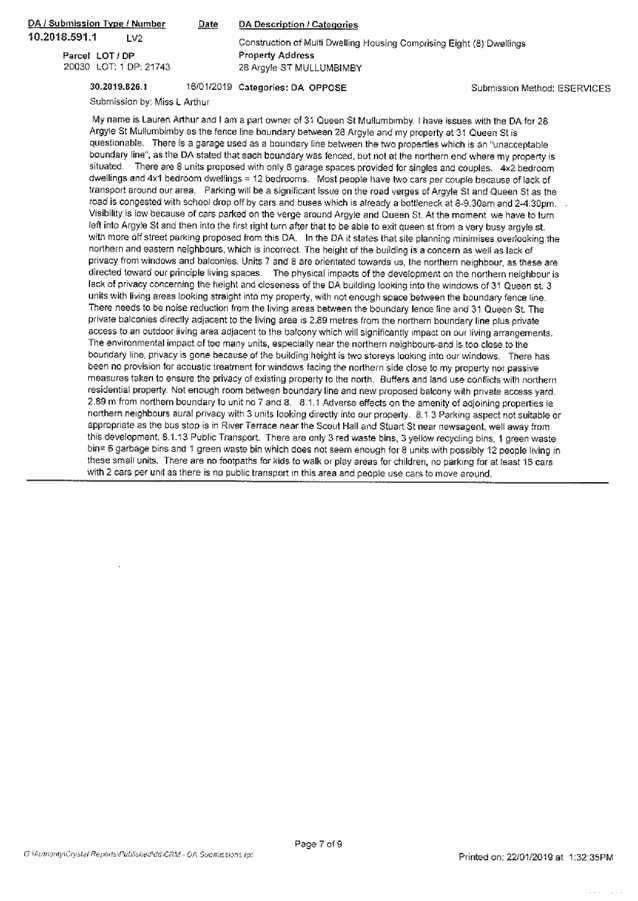 DA / Submission Type / Number Date DA Description / Categories
10.2018.591.1 LV2 Construction of Multi Dwelling Housing Comprising Eight (8) Dwellings
Parcel LOT / DP Property Address
20030 LOT: 1 DP: 21743 28 Argyle ST MULLUMBIMBY
30.2019.826.1 16/01/2019 Categories: DA OPPOSE Submission Method: ESERVICES
Submission by: Miss L Arthur
My name is Lauren Arthur and I am a part owner of 31 Queen St Mullumbimby. I have issues with the DA for 28
Argyle St Mullumbimby as the fence line boundary between 28 Argyle and my property at 31 Queen St is
questionable. There is a garage used as a boundary line between the two properties which is an "unacceptable
boundary line", as the DA stated that each boundary was fenced, but not at the northern end where my property is
situated. There are 8 units proposed with only 6 garage spaces provided for singles and couples. 4x2 bedroom
dwellings and 4x1 bedroom dwellings = 12 bedrooms. Most people have two cars per couple because of lack of
transport around our area. Parking will be a significant issue on the road verges of Argyle St and Queen St as the
road is congested with school drop off by cars and buses which is already a bottleneck at 8-9.30am and 2-4.30pm.
Visibility is low because of cars parked on the verge around Argyle and Queen St. At the moment we have to turn
left into Argyle St and then into the first right turn after that to be able to exit queen st from a very busy argyle st.
with more off street parking proposed from this DA. In the DA it states that site planning minimises overlooking the
northern and eastern neighbours, which is incorrect. The height of the building is a concern as well as lack of
privacy from windows and balconies. Units 7 and 8 are orientated towards us, the northern neighbour, as these are
directed toward our principle living spaces. The physical impacts of the development on the northern neighbour is
lack of privacy concerning the height and closeness of the DA building looking into the windows of 31 Queen st. 3
units with living areas looking straight into my property, with not enough space between the boundary fence line.
There needs to be noise reduction from the living areas between the boundary fence line and 31 Queen St. The
private balconies directly adjacent to the living area is 2.89 metres from the northern boundary line plus private
access to an outdoor living area adjacent to the balcony which will significantly impact on our living arrangements.
The environmental impact of too many units, especially near the northern neighbours-and is too close to the
boundary line, privacy is gone because of the building height is two storeys looking into our windows. There has
been no provision for acoustic treatment for windows facing the northern side close to my property nor passive
measures taken to ensure the privacy of existing property to the north. Buffers and land use conflicts with northern
residential property. Not enough room between boundary line and new proposed balcony with private access yard.
2.89 m from northern boundary to unit no 7 and 8. 8.1.1 Adverse effects on the amenity of adjoining properties ie
northern neighbours aural privacy with 3 units looking directly into our property. 8.1.3 Parking aspect not suitable or
appropriate as the bus stop is in River Terrace near the Scout Hall and Stuart St near newsagent, well away from
this development. 8.1.13 Public Transport. There are only 3 red waste bins, 3 yellow recycling bins, 1 green waste
bin= 6 garbage bins and 1 green waste bin which does not seem enough for 8 units with possibly 12 people living in
these small units. There are no footpaths for kids to walk or play areas for children, no parking for at least 15 cars
with 2 cars per unit as there is no public transport in this area and people use cars to move around.
Page 7 of 9
G:\Authority\Crystal Reports\Published\dd\CRM - DA Submissions.rpt Printed on: 22/01/2019 at 1:32:35PM